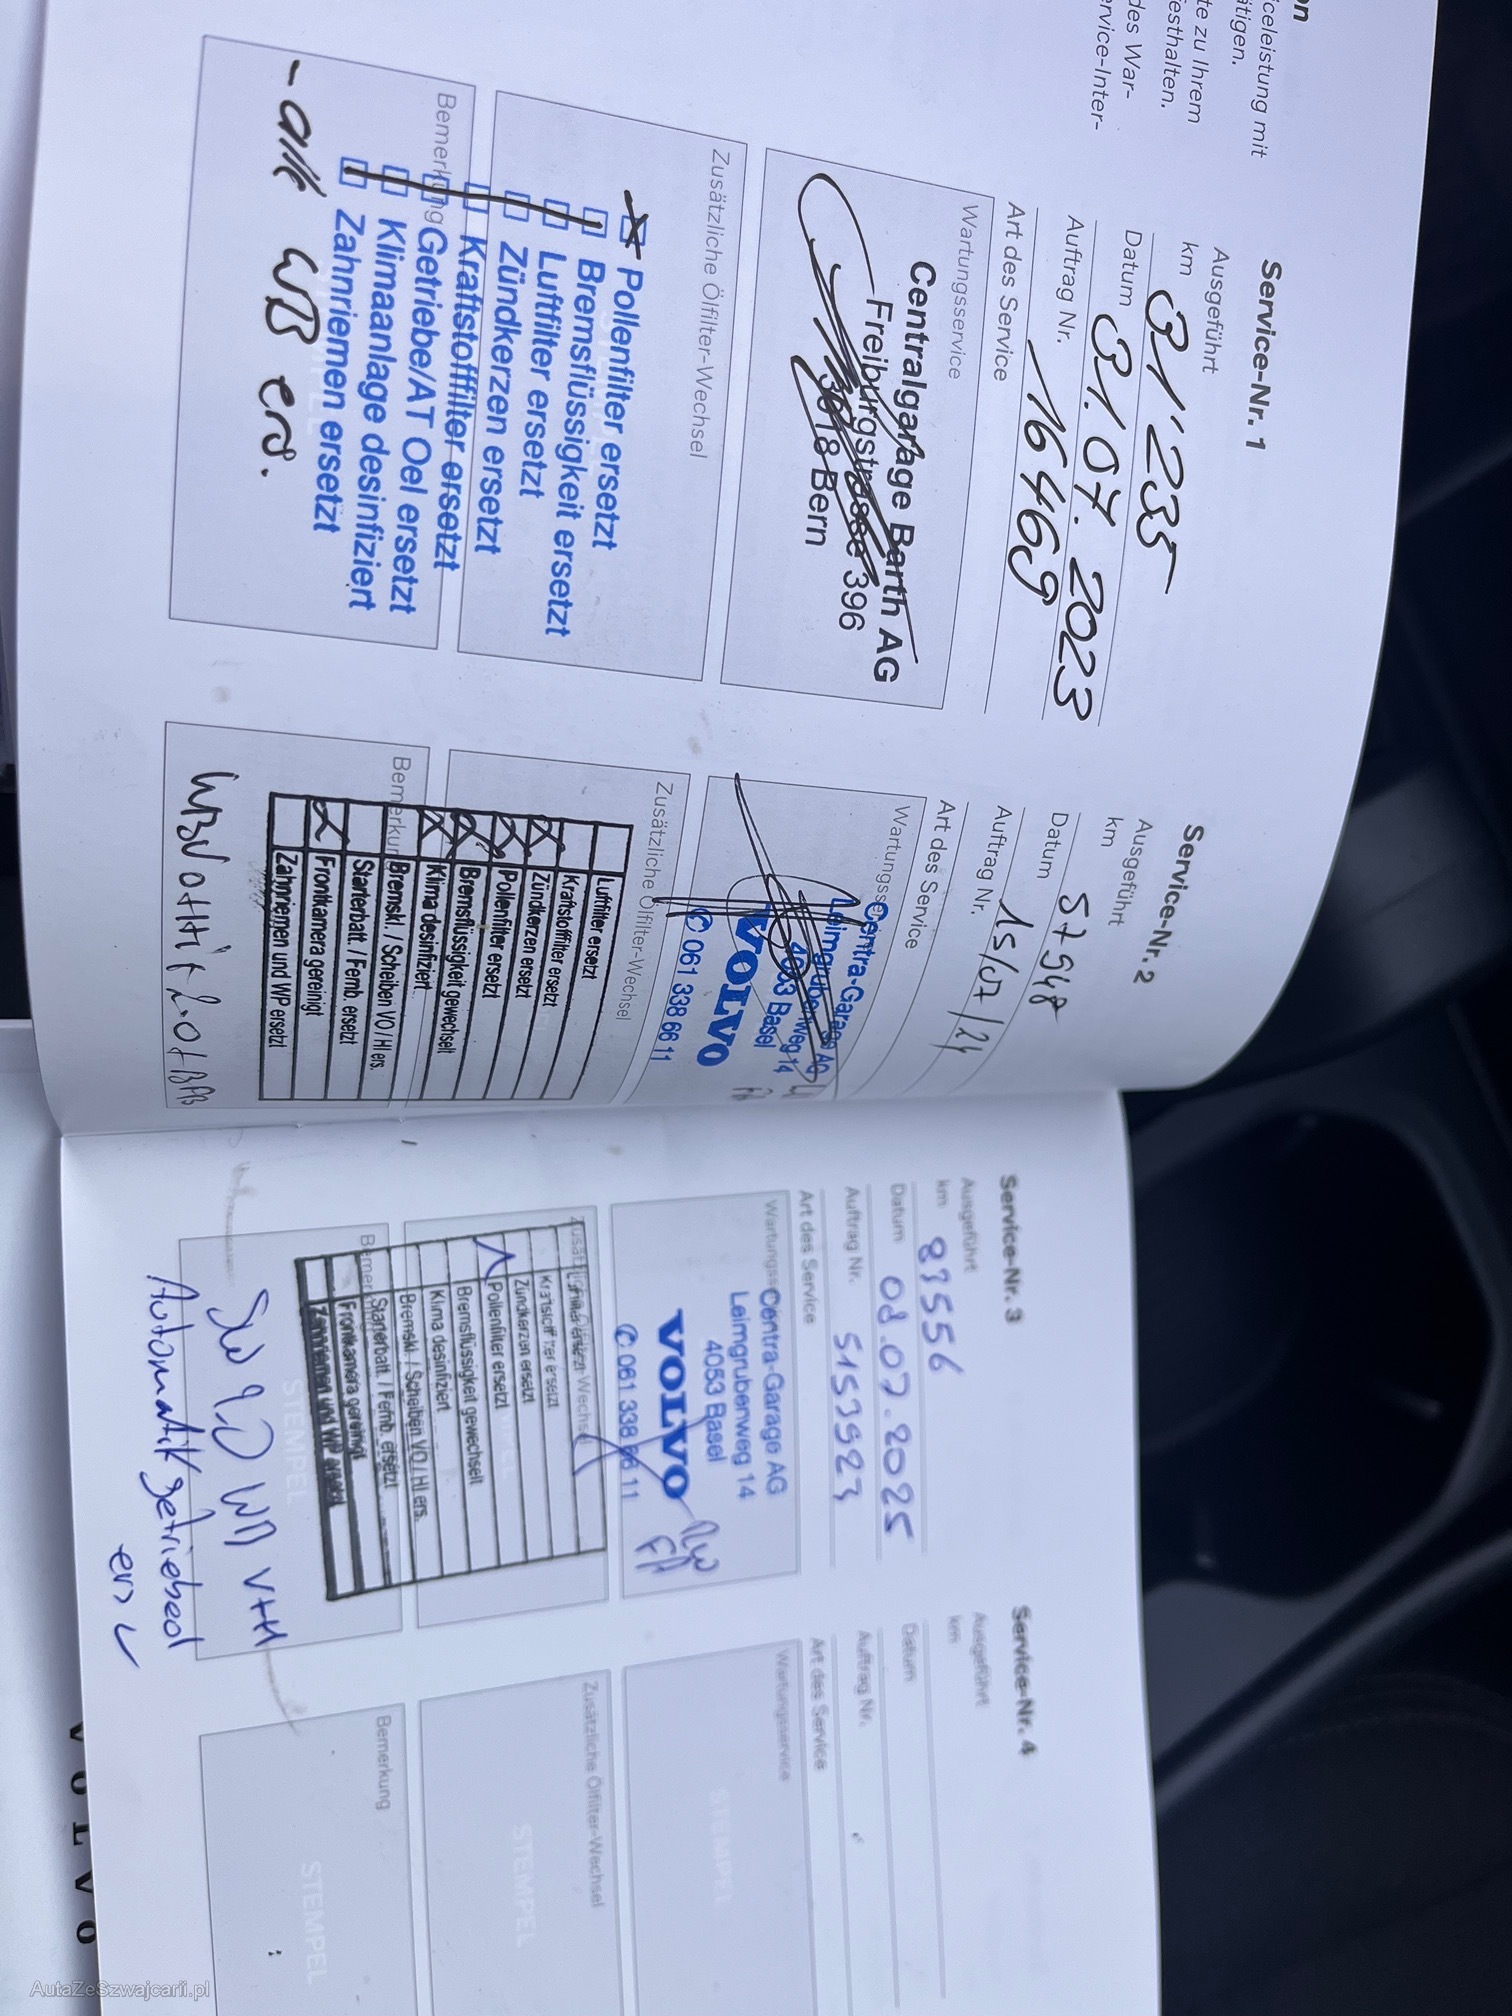 on
iceleistung mit
ätigen.
te zu Ihrem
esthalten.
des War-
ervice-Inter-
Service-Nr. 1
Ausgeführt
km 31'235
Datum 31.07.2023
Auftrag Nr. 16469
Art des Service
Wartungsservice
Centralgarage Barth AG
Freiburgstrasse 396
3018 Bern
Zusätzliche Ölfilter-Wechsel
Pollenfilter ersetzt
Bremsflüssigkeit ersetzt
Luftfilter ersetzt
Zündkerzen ersetzt
Kraftstofffilter ersetzt
Bemerkung
Getriebe/AT Oel ersetzt
Klimaanlage desinfiziert
Zahnriemen ersetzt
- alle WB ers.
Service-Nr. 2
Ausgeführt
km 57948
Datum 15/07/24
Auftrag Nr.
Art des Service
Wartungsservice
Centra-Garage AG
Leimgrubenweg 14
4053 Basel
VOLVO
✆ 061 338 66 11
Zusätzliche Ölfilter-Wechsel
Luftfilter ersetzt
Kraftstofffilter ersetzt
Zündkerzen ersetzt
Pollenfilter ersetzt
Bremsflüssigkeit gewechselt
Klima desinfiziert
Bemerkung
Bremskl. / Scheiben VO / HI ers.
Starterbatt. / Fernb. ersetzt
Frontkamera gereinigt
Zahnriemen und WP ersetzt
Service-Nr. 3
Ausgeführt
km 83556
Datum 08.07.2025
Auftrag Nr. 5153923
Art des Service
Wartungsservice
Centra-Garage AG
Leimgrubenweg 14
4053 Basel
VOLVO
✆ 061 338 66 11
Zusätzliche Ölfilter-Wechsel
Luftfilter ersetzt
Kraftstofffilter ersetzt
Zündkerzen ersetzt
Pollenfilter ersetzt
Bremsflüssigkeit gewechselt
Klima desinfiziert
Bremskl. / Scheiben VO / HI ers.
Bemerkung
Starterbatt. / Fernb. ersetzt
Frontkamera gereinigt
Zahnriemen und WP ersetzt
STEMPEL
V+H
Automatikgetriebeöl
ers
Service-Nr. 4
Ausgeführt
km
Datum
Auftrag Nr.
Art des Service
Wartungsservice
STEMPEL
Zusätzliche Ölfilter-Wechsel
STEMPEL
Bemerkung
STEMPEL
VOLVO
AutaZeSzwajcarii.pl